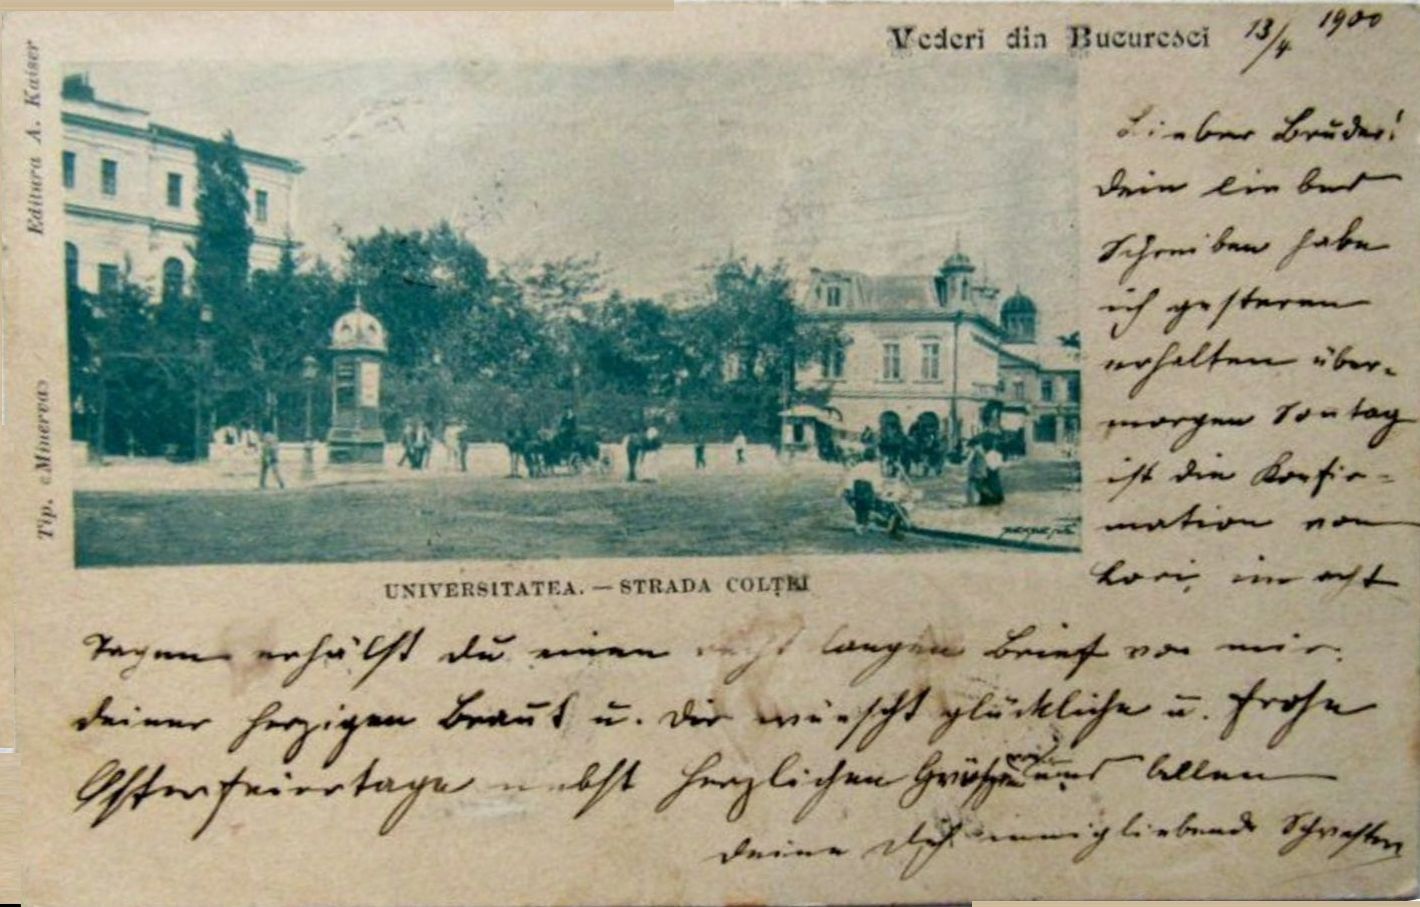 Vederi din Bucuresci
13/4 1900
Editura A. Kaiser
Tip. «Minerva»
Lieber Bruder!
Dein liebes
Schreiben habe
ich gesteren
erhalten über-
morgen Sontag
ist die Konfir-
mation von
Lori, in acht
UNIVERSITATEA. — STRADA COLȚEI
Tagen erhälst du einen recht langen Brief von mir.
deiner herzigen Braut u. Dir wünscht glückliche u. frohe
Osterfeiertage nebst herzlichen Grüßen von uns Allen
deine Dich inniglichebende Schwester